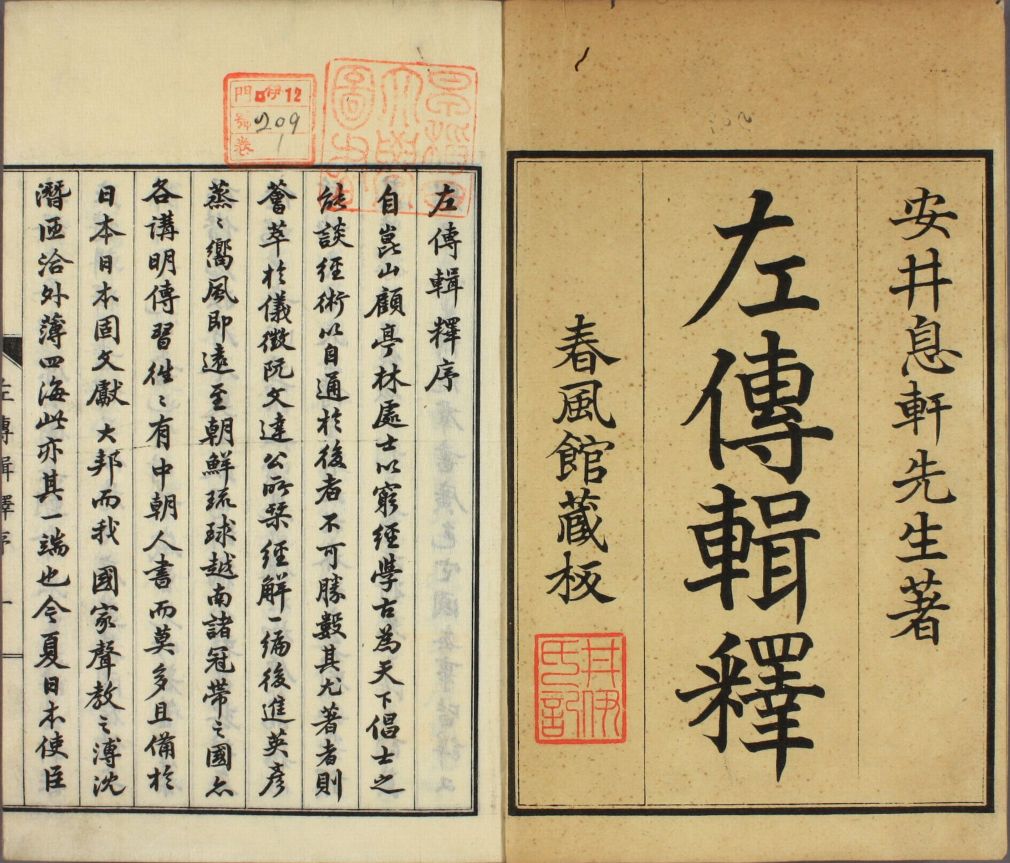 安井息軒先生著
左傳輯釋
春風館藏板
井伊氏記
門 伊 12
號 209
卷 1
左傳輯釋序
自崑山顧亭林處士以窮經學古為天下倡士之
能談經術以自通於後者不可勝數其尤著者則
薈萃於儀徵阮文達公所栞經解一編後進英彥
蒸〻嚮風即遠至朝鮮琉球越南諸冠帶之國亦
各講明傳習往〻有中朝人書而莫多且備於
日本日本固文獻大邦而我 國家聲教之溥沈
潛匝洽外薄四海此亦其一端也今夏日本使臣
左傳輯釋序 一